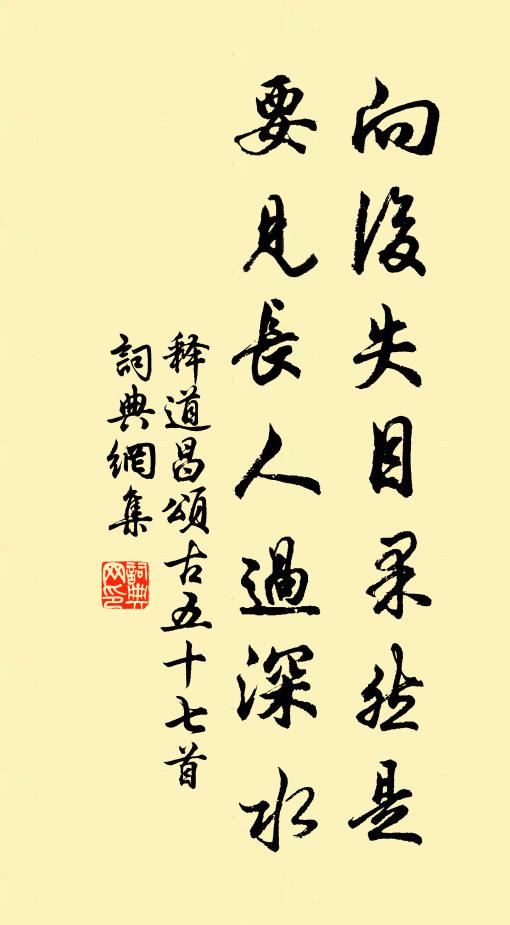 向後失目果然是
要見長人過深水
释道昌頌古五十七首
詞典網集
詞典網印